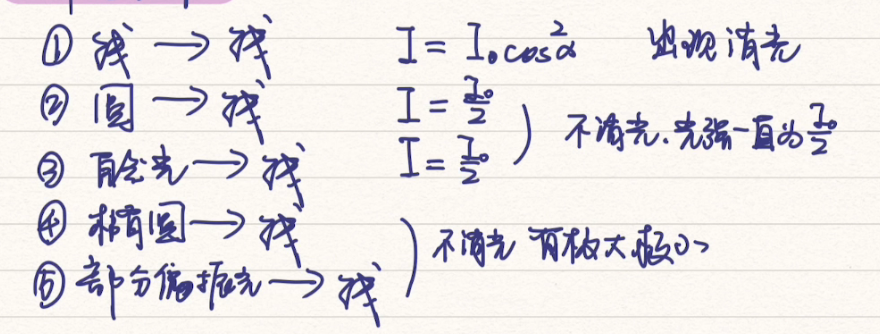 ① 线 → 线 I = I₀cos²α 出现消光
② 圆 → 线 I = I₀/2
③ 自然光 → 线 I = I₀/2 不消光.光强一直为I₀/2
④ 椭圆 → 线
⑤ 部分偏振光 → 线 不消光 有极大极小